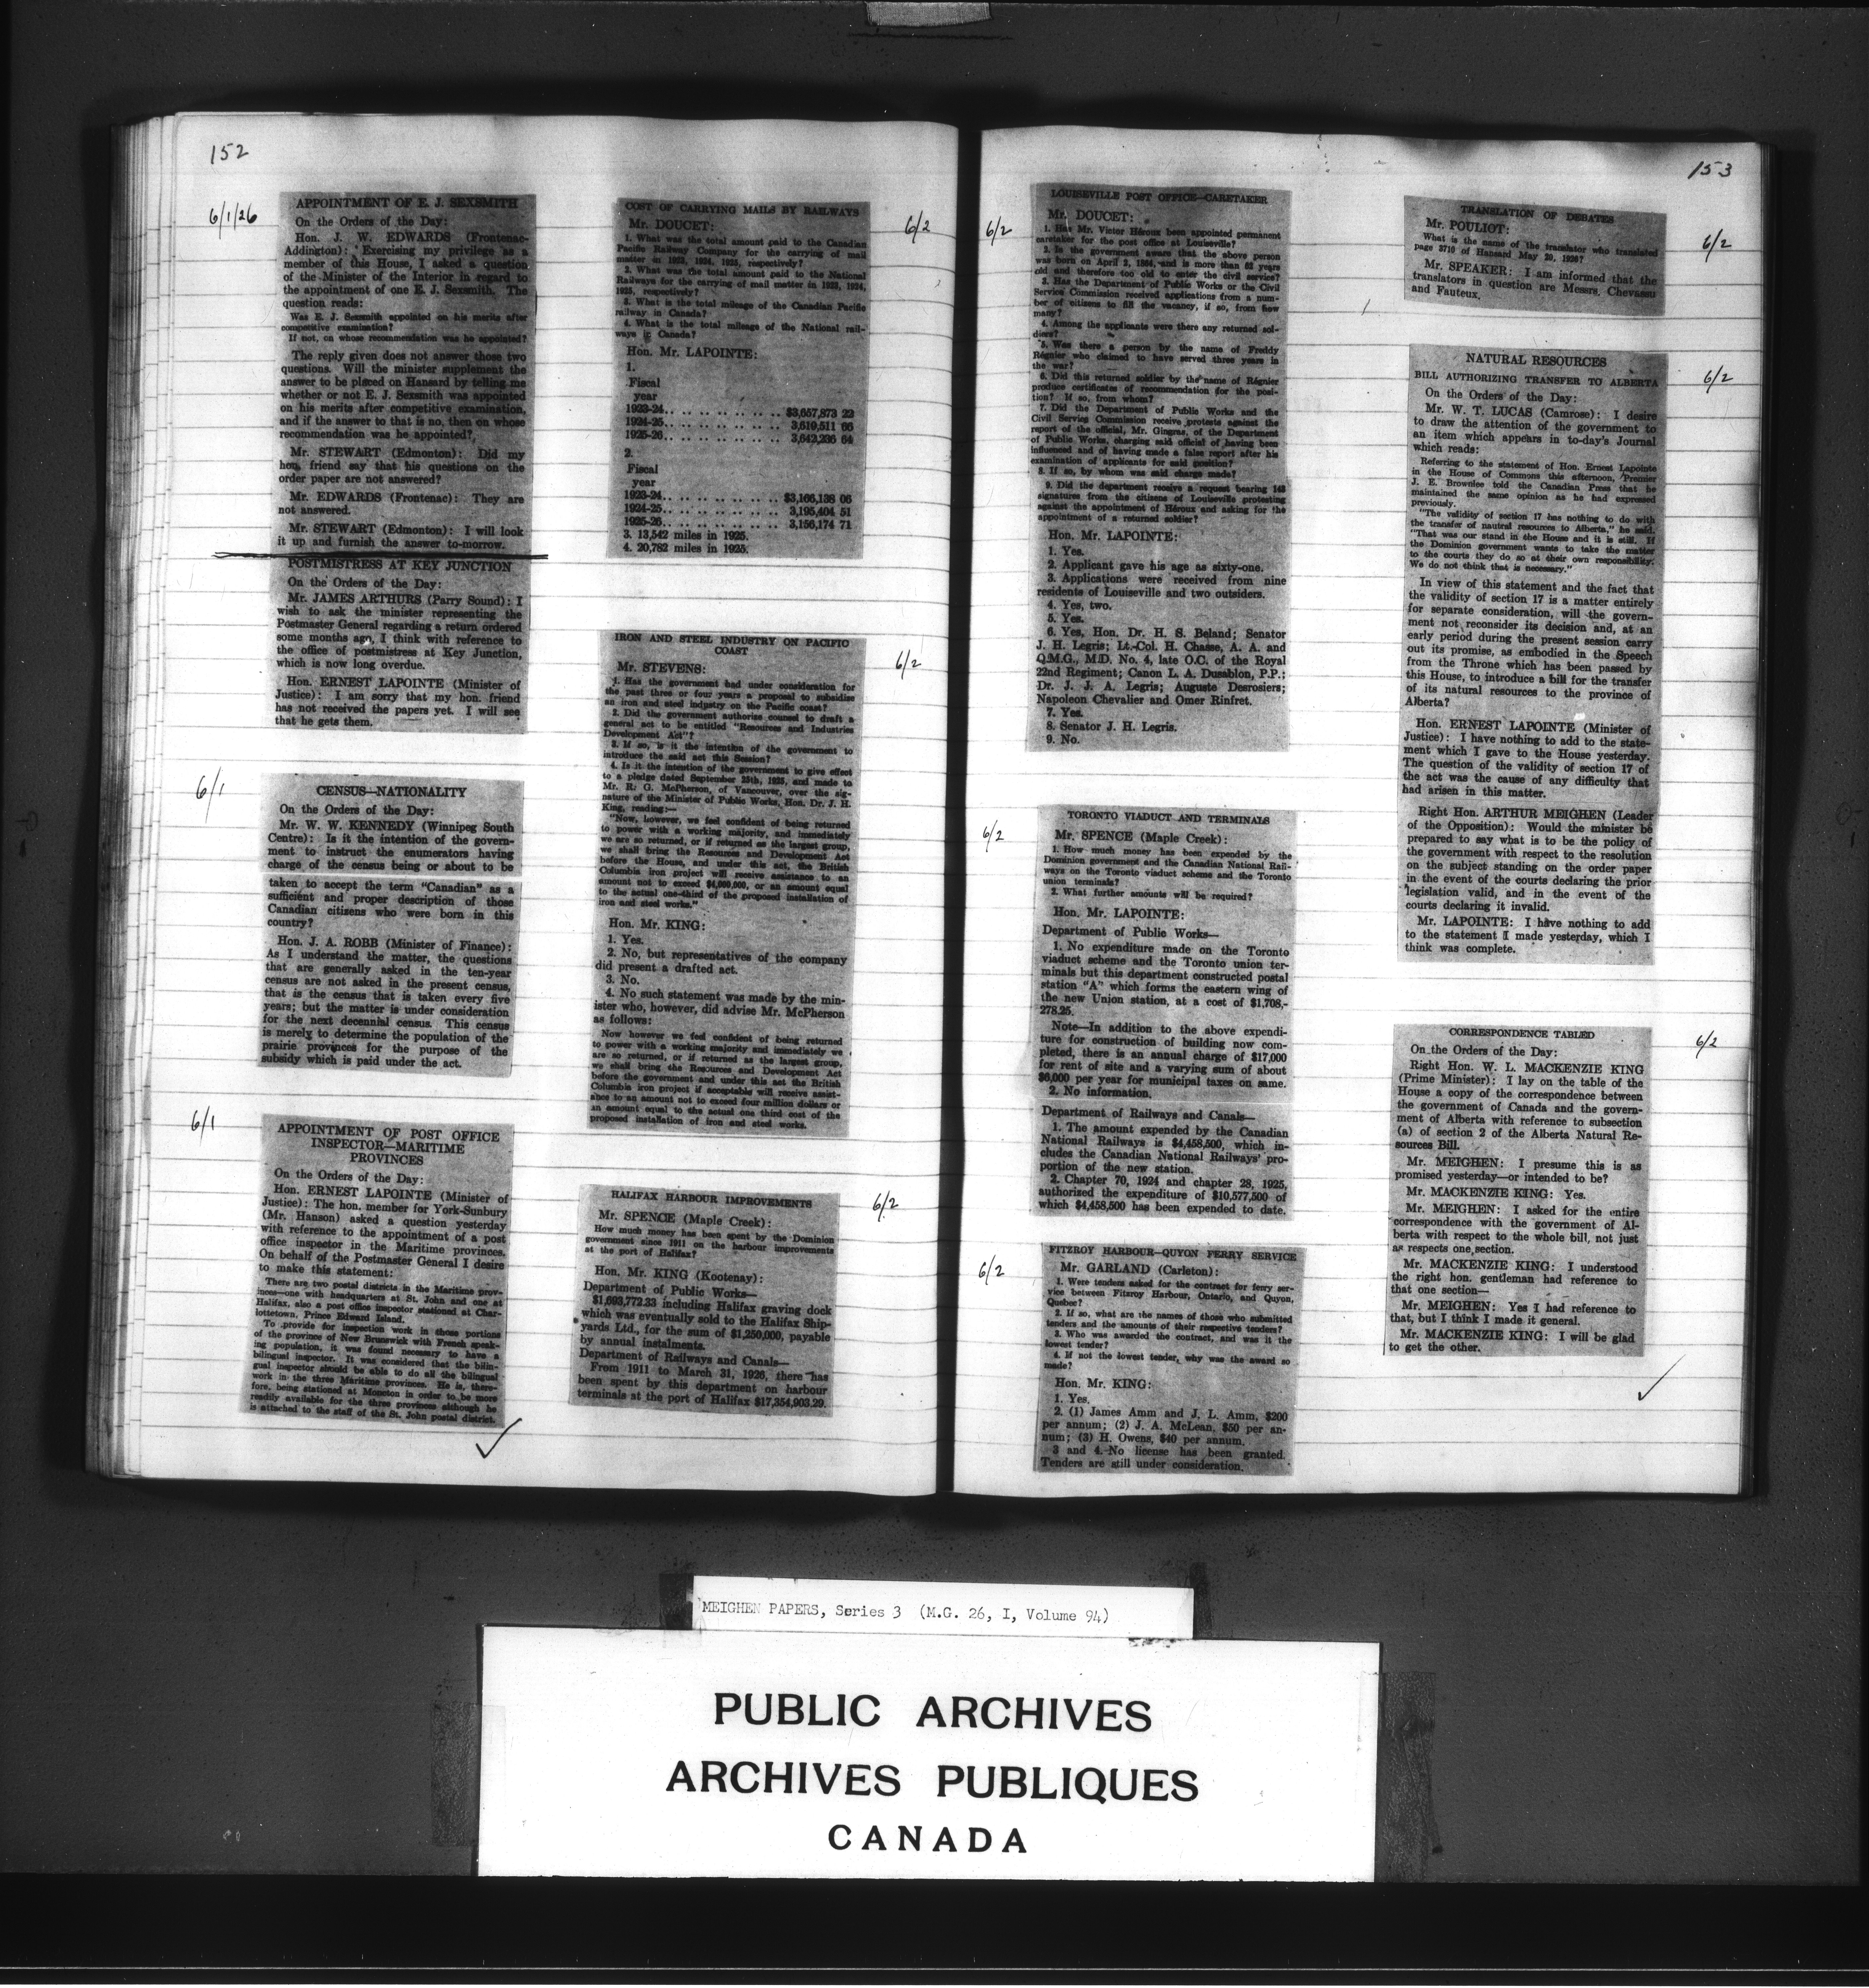 152
6/1/26
APPOINTMENT OF E. J. SEXSMITH
On the Orders of the Day:
Hon. J. W. EDWARDS (Frontenac-
Addington): Exercising my privilege as a
member of this House, I asked a question
of the Minister of the Interior in regard to
the appointment of one E. J. Sexsmith. The
question reads:
Was E. J. Sexsmith appointed on his merits after
competitive examination?
If not, on whose recommendation was he appointed?
The reply given does not answer those two
questions. Will the minister supplement the
answer to be placed on Hansard by telling me
whether or not E. J. Sexsmith was appointed
on his merits after competitive examination,
and if the answer to that is no, then on whose
recommendation was he appointed?
Mr. STEWART (Edmonton): Did my
hon. friend say that his questions on the
order paper are not answered?
Mr. EDWARDS (Frontenac): They are
not answered.
Mr. STEWART (Edmonton): I will look
it up and furnish the answer to-morrow.
POSTMISTRESS AT KEY JUNCTION
On the Orders of the Day:
Mr. JAMES ARTHURS (Parry Sound): I
wish to ask the minister representing the
Postmaster General regarding a return ordered
some months ago, I think with reference to
the office of postmistress at Key Junction,
which is now long overdue.
Hon. ERNEST LAPOINTE (Minister of
Justice): I am sorry that my hon. friend
has not received the papers yet. I will see
that he gets them.
6/1
CENSUS—NATIONALITY
On the Orders of the Day:
Mr. W. W. KENNEDY (Winnipeg South
Centre): Is it the intention of the govern-
ment to instruct the enumerators having
charge of the census being or about to be
taken to accept the term "Canadian" as a
sufficient and proper description of those
Canadian citizens who were born in this
country?
Hon. J. A. ROBB (Minister of Finance):
As I understand the matter, the questions
that are generally asked in the ten-year
census are not asked in the present census,
that is the census that is taken every five
years; but the matter is under consideration
for the next decennial census. This census
is merely to determine the population of the
prairie provinces for the purpose of the
subsidy which is paid under the act.
6/1
APPOINTMENT OF POST OFFICE
INSPECTOR—MARITIME
PROVINCES
On the Orders of the Day:
Hon. ERNEST LAPOINTE (Minister of
Justice): The hon. member for York-Sunbury
(Mr. Hanson) asked a question yesterday
with reference to the appointment of a post
office inspector in the Maritime provinces.
On behalf of the Postmaster General I desire
to make this statement:
There are two postal districts in the Maritime prov-
inces—one with headquarters at St. John and one at
Halifax, also a post office inspector stationed at Char-
lottetown, Prince Edward Island.
To provide for inspection work in those portions
of the province of New Brunswick with French speak-
ing population, it was found necessary to have a
bilingual inspector. It was considered that the bilin-
gual inspector should be able to do all the bilingual
work in the three Maritime provinces. He is, there-
fore, being stationed at Moncton in order to be more
readily available for the three provinces although he
is attached to the staff of the St. John postal district.
COST OF CARRYING MAILS BY RAILWAYS
6/2
Mr. DOUCET:
1. What was the total amount paid to the Canadian
Pacific Railway Company for the carrying of mail
matter in 1923, 1924, 1925, respectively?
2. What was the total amount paid to the National
Railways for the carrying of mail matter in 1923, 1924,
1925, respectively?
3. What is the total mileage of the Canadian Pacific
railway in Canada?
4. What is the total mileage of the National rail-
ways in Canada?
Hon. Mr. LAPOINTE:
1.
Fiscal
year
1923-24.. .. .. .. .. .. .. $3,657,873 23
1924-25.. .. .. .. .. .. .. 3,619,511 66
1925-26.. .. .. .. .. .. .. 3,642,236 64
2.
Fiscal
year
1923-24.. .. .. .. .. .. .. $3,166,138 06
1924-25.. .. .. .. .. .. .. 3,195,404 51
1925-26.. .. .. .. .. .. .. 3,156,174 71
3. 13,542 miles in 1925.
4. 20,782 miles in 1925.
IRON AND STEEL INDUSTRY ON PACIFIC
COAST
6/2
Mr. STEVENS:
1. Has the government had under consideration for
the past three or four years a proposal to subsidize
an iron and steel industry on the Pacific coast?
2. Did the government authorize counsel to draft a
general act to be entitled "Resources and Industries
Development Act"?
3. If so, is it the intention of the government to
introduce the said act this Session?
4. Is it the intention of the government to give effect
to a pledge dated September 25th, 1925, and made to
Mr. R. G. McPherson, of Vancouver, over the sig-
nature of the Minister of Public Works, Hon. Dr. J. H.
King, reading:—
"Now, however, we feel confident of being returned
to power with a working majority, and immediately
we are so returned, or if returned as the largest group,
we shall bring the Resources and Development Act
before the House, and under this act, the British
Columbia iron project will receive assistance to an
amount not to exceed $4,000,000, or an amount equal
to the actual one-third of the proposed installation of
iron and steel works."
Hon. Mr. KING:
1. Yes.
2. No, but representatives of the company
did present a drafted act.
3. No.
4. No such statement was made by the min-
ister who, however, did advise Mr. McPherson
as follows:
Now however we feel confident of being returned
to power with a working majority and immediately we
are so returned, or if returned as the largest group,
we shall bring the Resources and Development Act
before the government and under this act the British
Columbia iron project if acceptable will receive assist-
ance to an amount not to exceed four million dollars or
an amount equal to the actual one third cost of the
proposed installation of iron and steel works.
HALIFAX HARBOUR IMPROVEMENTS
6/2
Mr. SPENCE (Maple Creek):
How much money has been spent by the Dominion
government since 1911 on the harbour improvements
at the port of Halifax?
Hon. Mr. KING (Kootenay):
Department of Public Works—
$1,693,772.33 including Halifax graving dock
which was eventually sold to the Halifax Ship-
yards Ltd., for the sum of $1,250,000, payable
by annual instalments.
Department of Railways and Canals—
From 1911 to March 31, 1926, there has
been spent by this department on harbour
terminals at the port of Halifax $17,354,903.29.
153
6/2
LOUISEVILLE POST OFFICE—CARETAKER
Mr. DOUCET:
1. Has Mr. Victor Héroux been appointed permanent
caretaker for the post office at Louiseville?
2. Is the government aware that the above person
was born on April 2, 1864, and is more than 62 years
old and therefore too old to enter the civil service?
3. Has the Department of Public Works or the Civil
Service Commission received applications from a num-
ber of citizens to fill the vacancy, if so, from how
many?
4. Among the applicants were there any returned sol-
diers?
5. Was there a person by the name of Freddy
Régnier who claimed to have served three years in
the war?
6. Did this returned soldier by the name of Régnier
produce certificates of recommendation for the posi-
tion? If so, from whom?
7. Did the Department of Public Works and the
Civil Service Commission receive protests against the
report of the official, Mr. Gingras, of the Department
of Public Works, charging said official of having been
influenced and of having made a false report after his
examination of applicants for said position?
8. If so, by whom was said charge made?
9. Did the department receive a request bearing 148
signatures from the citizens of Louiseville protesting
against the appointment of Héroux and asking for the
appointment of a returned soldier?
Hon. Mr. LAPOINTE:
1. Yes.
2. Applicant gave his age as sixty-one.
3. Applications were received from nine
residents of Louiseville and two outsiders.
4. Yes, two.
5. Yes.
6. Yes, Hon. Dr. H. S. Beland; Senator
J. H. Legris; Lt.-Col. H. Chasse, A. A. and
Q.M.G., M.D. No. 4, late O.C. of the Royal
22nd Regiment; Canon L. A. Dusablon, P.P.;
Dr. J. J. A. Legris; Auguste Desrosiers;
Napoleon Chevalier and Omer Rinfret.
7. Yes.
8. Senator J. H. Legris.
9. No.
6/2
TORONTO VIADUCT AND TERMINALS
Mr. SPENCE (Maple Creek):
1. How much money has been expended by the
Dominion government and the Canadian National Rail-
ways on the Toronto viaduct scheme and the Toronto
union terminals?
2. What further amounts will be required?
Hon. Mr. LAPOINTE:
Department of Public Works—
1. No expenditure made on the Toronto
viaduct scheme and the Toronto union ter-
minals but this department constructed postal
station "A" which forms the eastern wing of
the new Union station, at a cost of $1,708,-
278.25.
Note—In addition to the above expendi-
ture for construction of building now com-
pleted, there is an annual charge of $17,000
for rent of site and a varying sum of about
$6,000 per year for municipal taxes on same.
2. No information.
Department of Railways and Canals—
1. The amount expended by the Canadian
National Railways is $4,458,500, which in-
cludes the Canadian National Railways' pro-
portion of the new station.
2. Chapter 70, 1924 and chapter 28, 1925,
authorized the expenditure of $10,577,500 of
which $4,458,500 has been expended to date.
6/2
FITZROY HARBOUR—QUYON FERRY SERVICE
Mr. GARLAND (Carleton):
1. Were tenders asked for the contract for ferry ser-
vice between Fitzroy Harbour, Ontario, and Quyon,
Quebec?
2. If so, what are the names of those who submitted
tenders and the amounts of their respective tenders?
3. Who was awarded the contract, and was it the
lowest tender?
4. If not the lowest tender, why was the award so
made?
Hon. Mr. KING:
1. Yes.
2. (1) James Amm and J. L. Amm, $200
per annum; (2) J. A. McLean, $50 per an-
num; (3) H. Owens, $40 per annum.
3 and 4. No license has been granted.
Tenders are still under consideration.
TRANSLATION OF DEBATES
6/2
Mr. POULIOT:
What is the name of the translator who translated
page 3710 of Hansard May 20, 1926?
Mr. SPEAKER: I am informed that the
translators in question are Messrs. Chevassu
and Fauteux.
NATURAL RESOURCES
6/2
BILL AUTHORIZING TRANSFER TO ALBERTA
On the Orders of the Day:
Mr. W. T. LUCAS (Camrose): I desire
to draw the attention of the government to
an item which appears in to-day's Journal
which reads:
Referring to the statement of Hon. Ernest Lapointe
in the House of Commons this afternoon, Premier
J. E. Brownlee told the Canadian Press that he
maintained the same opinion as he had expressed
previously.
"The validity of section 17 has nothing to do with
the transfer of nautral resources to Alberta," he said.
"That was our stand in the House and it is still. If
the Dominion government wants to take the matter
to the courts they do so at their own responsibility.
We do not think that is necessary."
In view of this statement and the fact that
the validity of section 17 is a matter entirely
for separate consideration, will the govern-
ment not reconsider its decision and, at an
early period during the present session carry
out its promise, as embodied in the Speech
from the Throne which has been passed by
this House, to introduce a bill for the transfer
of its natural resources to the province of
Alberta?
Hon. ERNEST LAPOINTE (Minister of
Justice): I have nothing to add to the state-
ment which I gave to the House yesterday.
The question of the validity of section 17 of
the act was the cause of any difficulty that
had arisen in this matter.
Right Hon. ARTHUR MEIGHEN (Leader
of the Opposition): Would the minister be
prepared to say what is to be the policy of
the government with respect to the resolution
on the subject standing on the order paper
in the event of the courts declaring the prior
legislation valid, and in the event of the
courts declaring it invalid.
Mr. LAPOINTE: I have nothing to add
to the statement I made yesterday, which I
think was complete.
CORRESPONDENCE TABLED
6/2
On the Orders of the Day:
Right Hon. W. L. MACKENZIE KING
(Prime Minister): I lay on the table of the
House a copy of the correspondence between
the government of Canada and the govern-
ment of Alberta with reference to subsection
(a) of section 2 of the Alberta Natural Re-
sources Bill.
Mr. MEIGHEN: I presume this is as
promised yesterday—or intended to be?
Mr. MACKENZIE KING: Yes.
Mr. MEIGHEN: I asked for the entire
correspondence with the government of Al-
berta with respect to the whole bill, not just
as respects one section.
Mr. MACKENZIE KING: I understood
the right hon. gentleman had reference to
that one section—
Mr. MEIGHEN: Yes I had reference to
that, but I think I made it general.
Mr. MACKENZIE KING: I will be glad
to get the other.
MEIGHEN PAPERS, Series 3 (M.G. 26, I, Volume 94)
PUBLIC ARCHIVES
ARCHIVES PUBLIQUES
CANADA